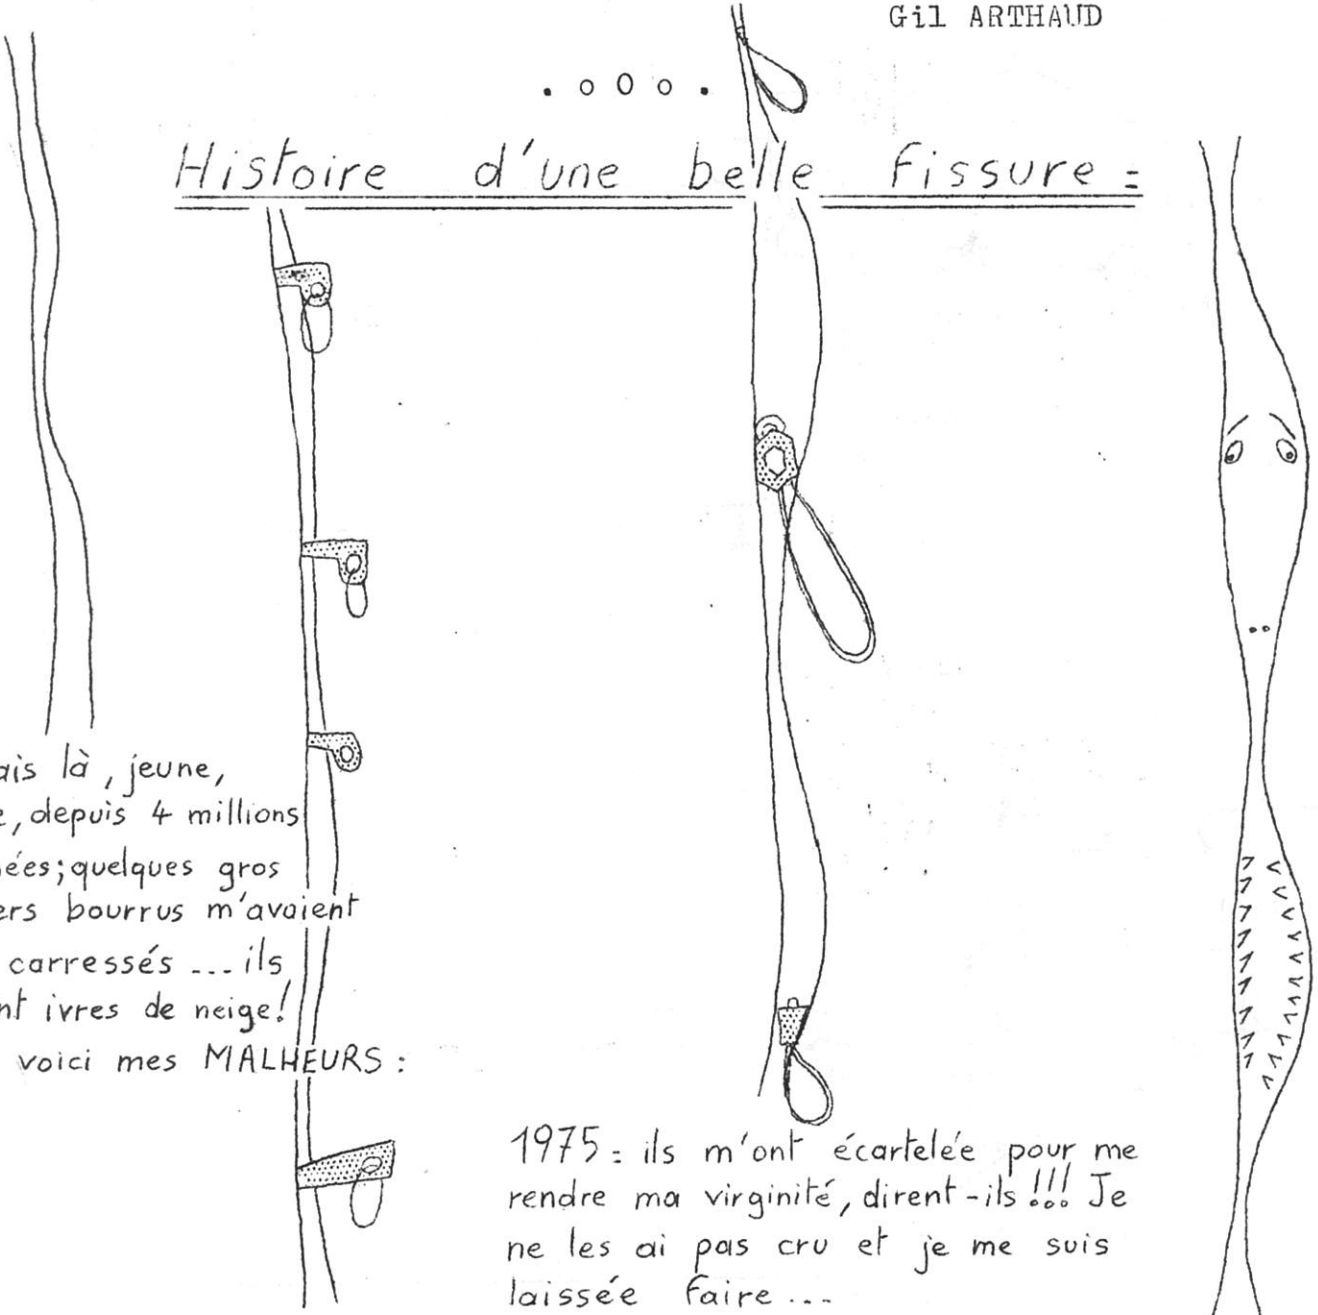 Gil ARTHAUD
. o O o .
Histoire d'une belle fissure =
ais là, jeune,
e, depuis 4 millions
ées; quelques gros
ers bourrus m'avaient
carressés --- ils
nt ivres de neige!
voici mes MALHEURS :
1975 = ils m'ont écartelée pour me
rendre ma virginité, dirent-ils !!! Je
ne les ai pas cru et je me suis
laissée faire ...